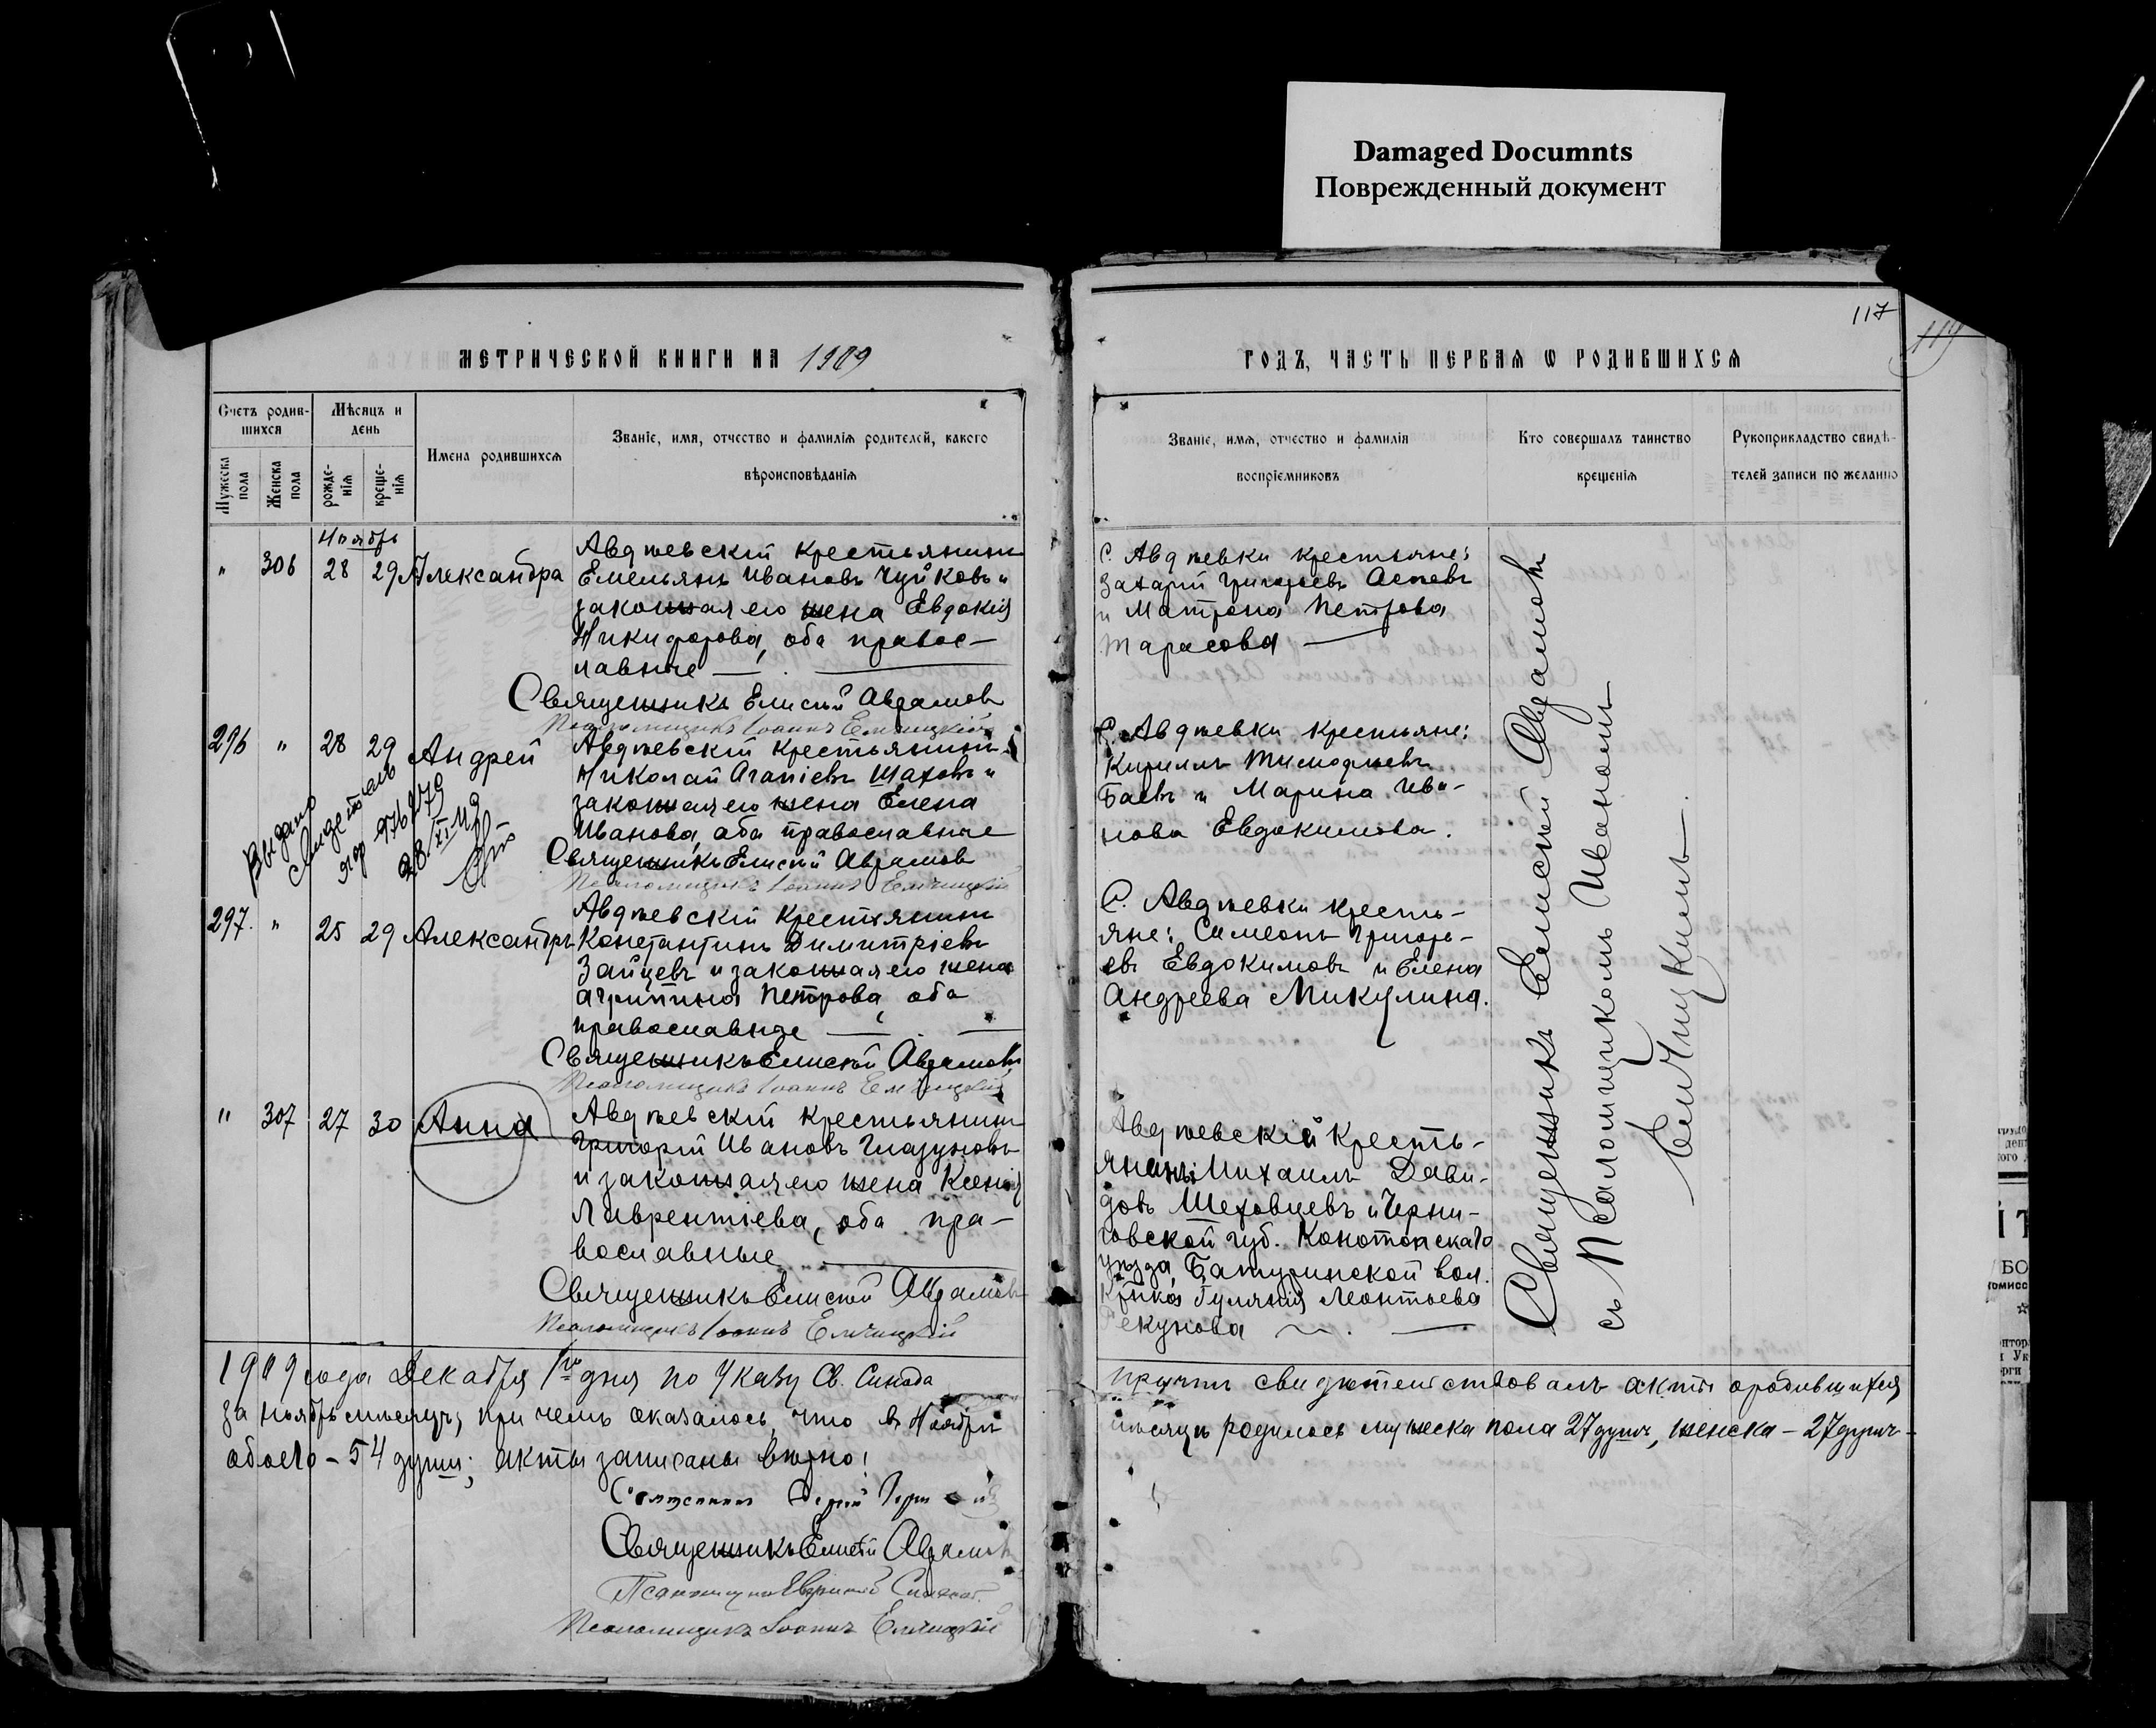 Damaged Documnts
Поврежденный документ
117
119
МЕТРИЧЕСКОЙ КНИГИ НА 1909
ГОДЪ, ЧАСТЬ ПЕРВАЯ Ѡ РОДИВШИХСЯ
Счетъ родив-
шихся
Мужеска
пола
Женска
пола
Мѣсяцъ и
день
рожде-
нія
креще-
нія
Имена родившихся
Званіе, имя, отчество и фамилія родителей, какого
вѣроисповѣданія
Званіе, имя, отчество и фамилія
воспріемниковъ
Кто совершалъ таинство
крещенія
Рукоприкладство свидѣ-
телей записи по желанію
Ноябрь
" 306 28 29 Александра
Авдѣевскій крестьянинъ
Емельянъ Ивановъ Чуйковъ и
законная его жена Евдокія
Никифорова, оба правос-
лавные
Священникъ Елисей Аврамовъ
Псаломщикъ Іоаннъ Елчицкій
С. Авдѣевки крестьяне:
Захарій Григорьевъ Асѣевъ
и Матрона Петрова
Тарасова
296 " 28 29 Андрей
Авдѣевскій крестьянинъ
Николай Агапіевъ Шаховъ и
законная его жена Елена
Иванова, оба православные
Священникъ Елисей Аврамовъ
Псаломщикъ Іоаннъ Елчицкій
С. Авдѣевки крестьяне:
Кириллъ Тимофѣевъ
Баевъ и Марина Ива-
нова Евдокимова.
Выдано
28/XI 49
297. " 25 29 Александръ
Авдѣевскій крестьянинъ
Константинъ Димитріевъ
Зайцевъ и законная его жена
Агрипина Петрова, оба
православные
Священникъ Елисей Аврамовъ
Псаломщикъ Іоаннъ Елчицкій
С. Авдѣевки кресть-
яне: Симеонъ Григорь-
евъ Евдокимовъ и Елена
Андреева Микулина.
" 307 27 30 Анна
Авдѣевскій крестьянинъ
Григорій Ивановъ Глазуновъ
и законная его жена Ксенія
Лаврентіева, оба пра-
вославные
Священникъ Елисей Аврамовъ
Псаломщикъ Іоаннъ Елчицкій
Авдѣевскій кресть-
янинъ Михаилъ Дави-
довъ Шеховцевъ и Черни-
говской губ. Конотопскаго
уѣзда, Батуринской вол.
Леонтьева
Рекунова
Священникъ Елисей Аврамовъ
съ Псаломщикомъ Иваномъ
Елчицкимъ
1909 года Декабря 1го дня по Указу Св. Синода
причтъ свидѣтельствовалъ акты о родившихся
за ноябрь мѣсяцъ, при чемъ оказалось, что въ Ноябрѣ
мѣсяцѣ родилось мужеска пола 27 душъ, женска – 27 душъ
обоего – 54 души; акты записаны вѣрно:
Священникъ
Священникъ Елисей Аврамовъ
Псаломщикъ
Псаломщикъ Іоаннъ Елчицкій